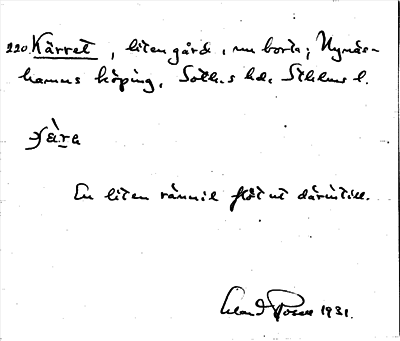 220. Kärret, liten gård, nu borta; Nynäs-
hamns köping, Soth.s hd, Sthlms l.
En liten rännil flöt ut därintill.
1931.